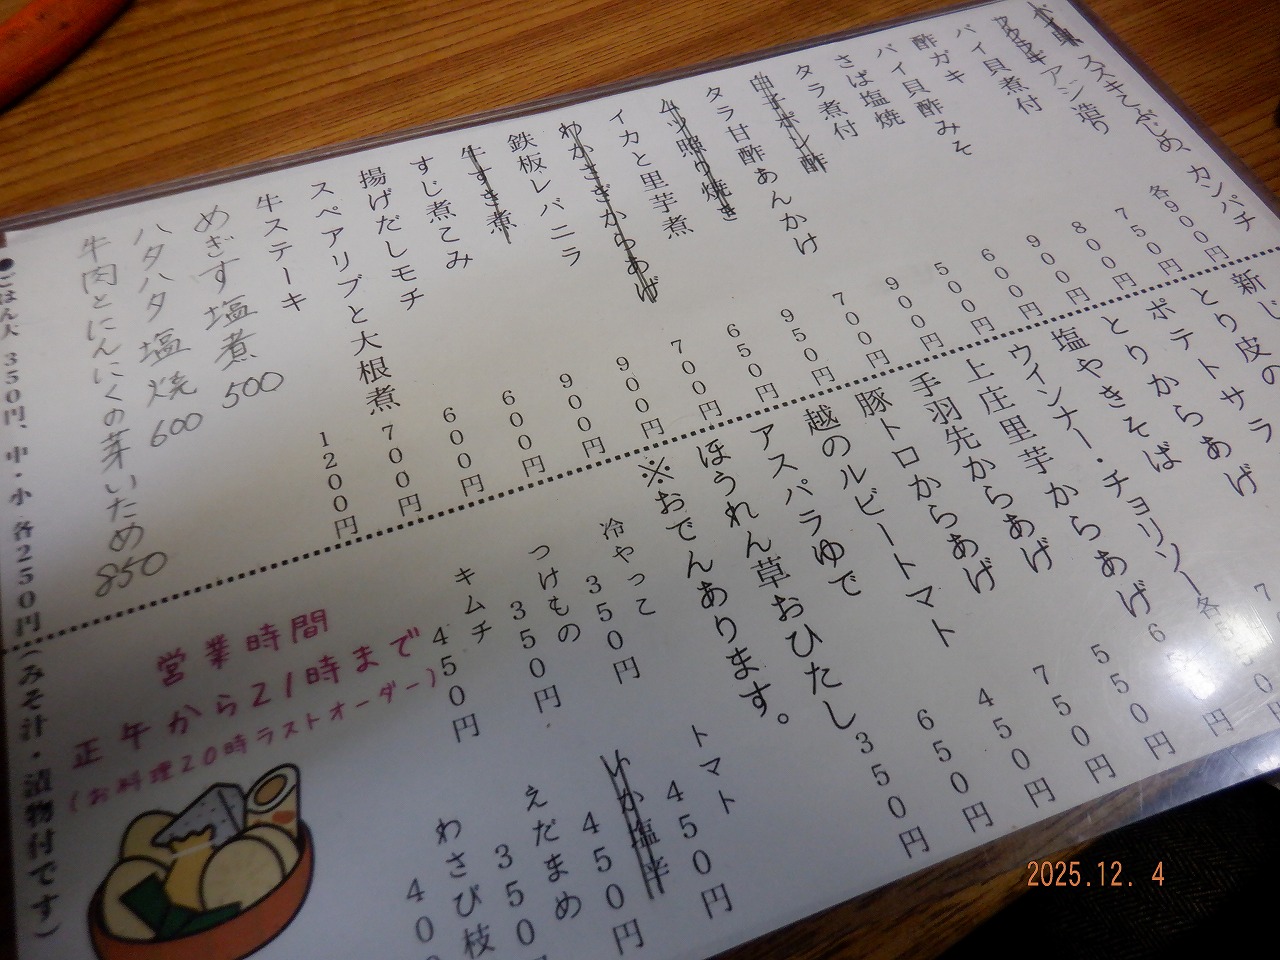 スズキこぶじめ、カンパチ
アジ造り 各900円
バイ貝煮付 750円
酢ガキ 800円
バイ貝酢みそ 900円
さば塩焼 600円
タラ煮付 500円
白子ポン酢 900円
タラ甘酢あんかけ 700円
ブリ照り焼き 950円
イカと里芋煮 650円
わかさぎからあげ 700円
鉄板レバニラ 900円
牛すき煮 900円
すじ煮こみ 600円
揚げだしモチ 600円
スペアリブと大根煮 700円
牛ステーキ 1200円
めぎす塩煮 500
ハタハタ塩焼 600
牛肉とにんにくの芽いため 850
新じ
とり皮の
ポテトサラ
とりからあげ
塩やきそば
ウインナー・チョリソー各
上庄里芋からあげ
手羽先からあげ 550円
豚トロからあげ 750円
越のルビートマト 450円
アスパラゆで 650円
ほうれん草おひたし 350円
※おでんあります。
冷やっこ 350円
つけもの 350円
キムチ 450円
トマト 450円
いか塩辛 450円
えだまめ 350
わさび枝
営業時間
正午から21時まで
(お料理20時ラストオーダー)
●ごはん大 350円、中・小 各250円(みそ汁・漬物付です)
2025.12. 4